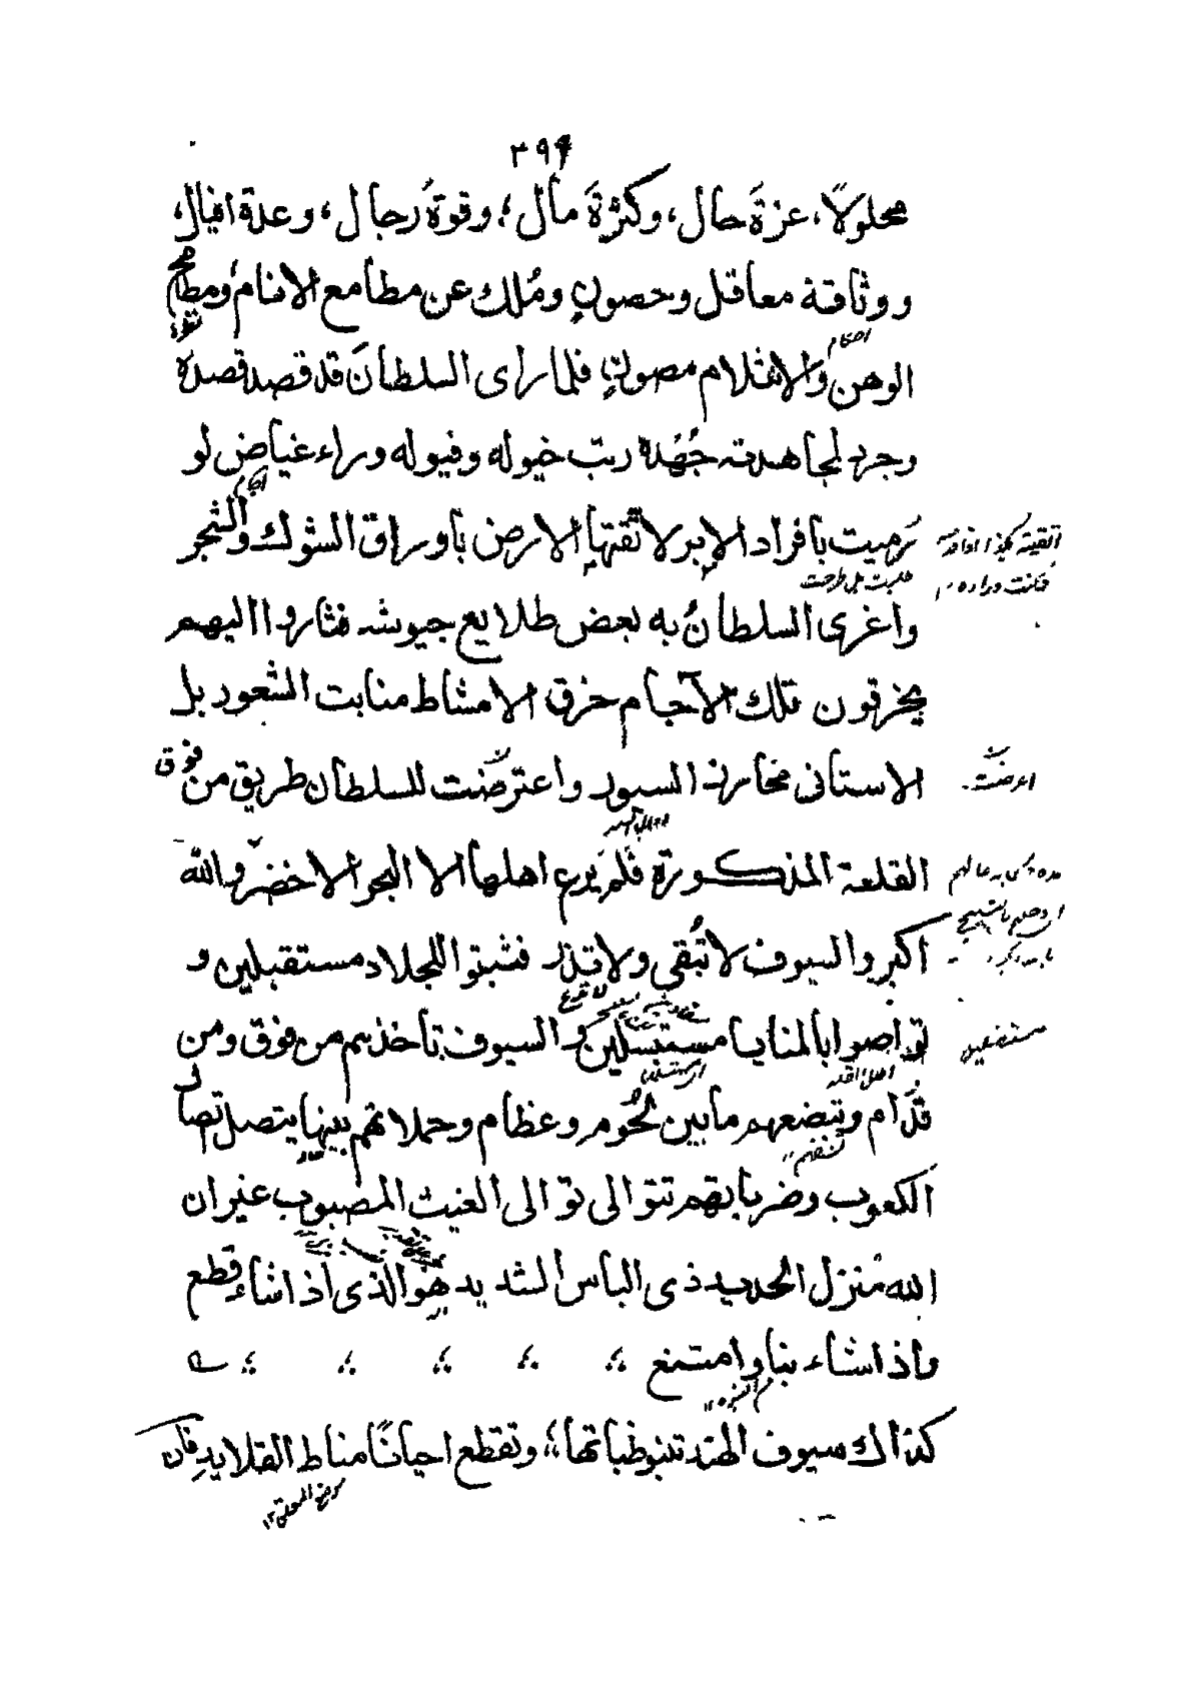 ٣٩٤
محلولاً، عزةَ حال، وكثرةَ مال، وقوةُ رجال، وعدة افيال،
ووثاقة معاقل وحصونٍ ومُلك عن مطامع الانام ومطامح
الوهن والانثلام مصونٍ فلما رأى السلطانَ قد قصد قصدهَ
وجرد لمجاهدته جُهْدهُ رتّب خيوله وفيوله وراء غياض لو
رَميت بافراد الإبر لاتّقتها الارض باوراق الشوك والشجر
واغرى السلطانُ به بعض طلايع جيوشه فثاروا اليهم
يخرقون تلك الآجام خرق الامشاط منابت الشعور بل
الاستانى مخارز السيور واعترضت للسلطان طريق من فوق
القلعة المذكورة فلم يَرع اهلها الا البحر الاخضر والله
اكبر والسيوف لا تُبقي ولا تذر فثبتوا للجلاد مستقبلين و
تواصوا بالمنايا مستبسلين والسيوف تأخذهم من فوق ومن
قدّام وتبضعهم مابين لُحُوم وعظام وحملاتهم بينها يتصل اتصال
الكعوب وضرباتهم تتوالى توالى الغيث المصبوب غير ان
الله مُنزل الحديد ذى الباس الشديد هو الذى اذا شاء قطع
واذا شاء نبا وامتنع
كذاك سيوف الهند تنبو ظباتها، وتقطع احيانًا مناط القلايد فان
احكام
آجام
اعرضت